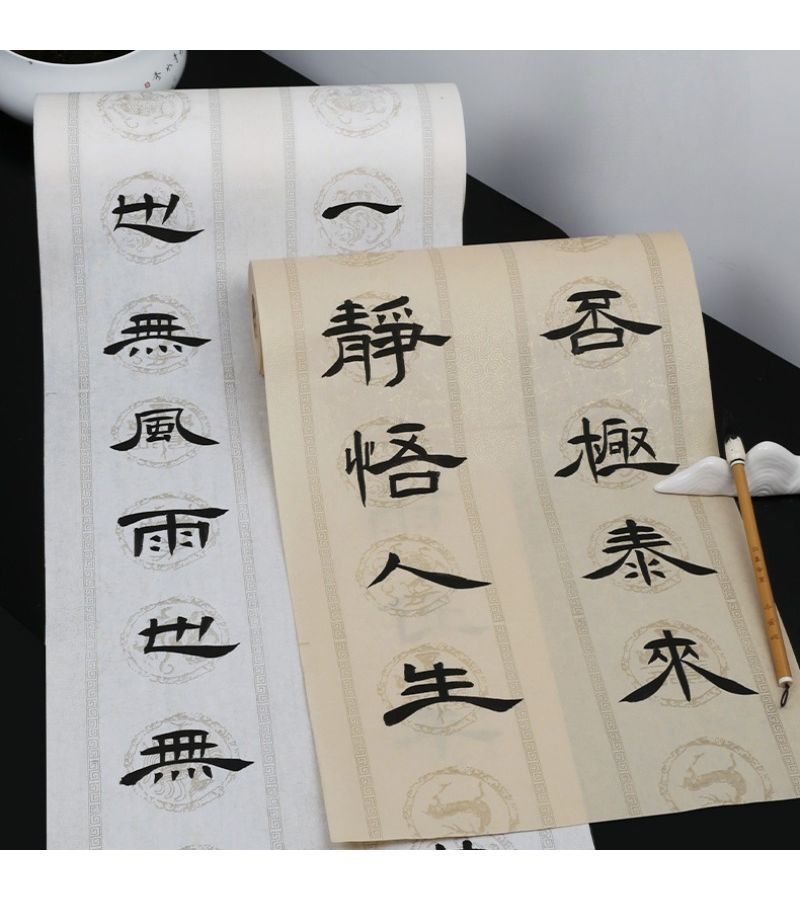 否極泰來
靜悟人生
一
也無風雨也無